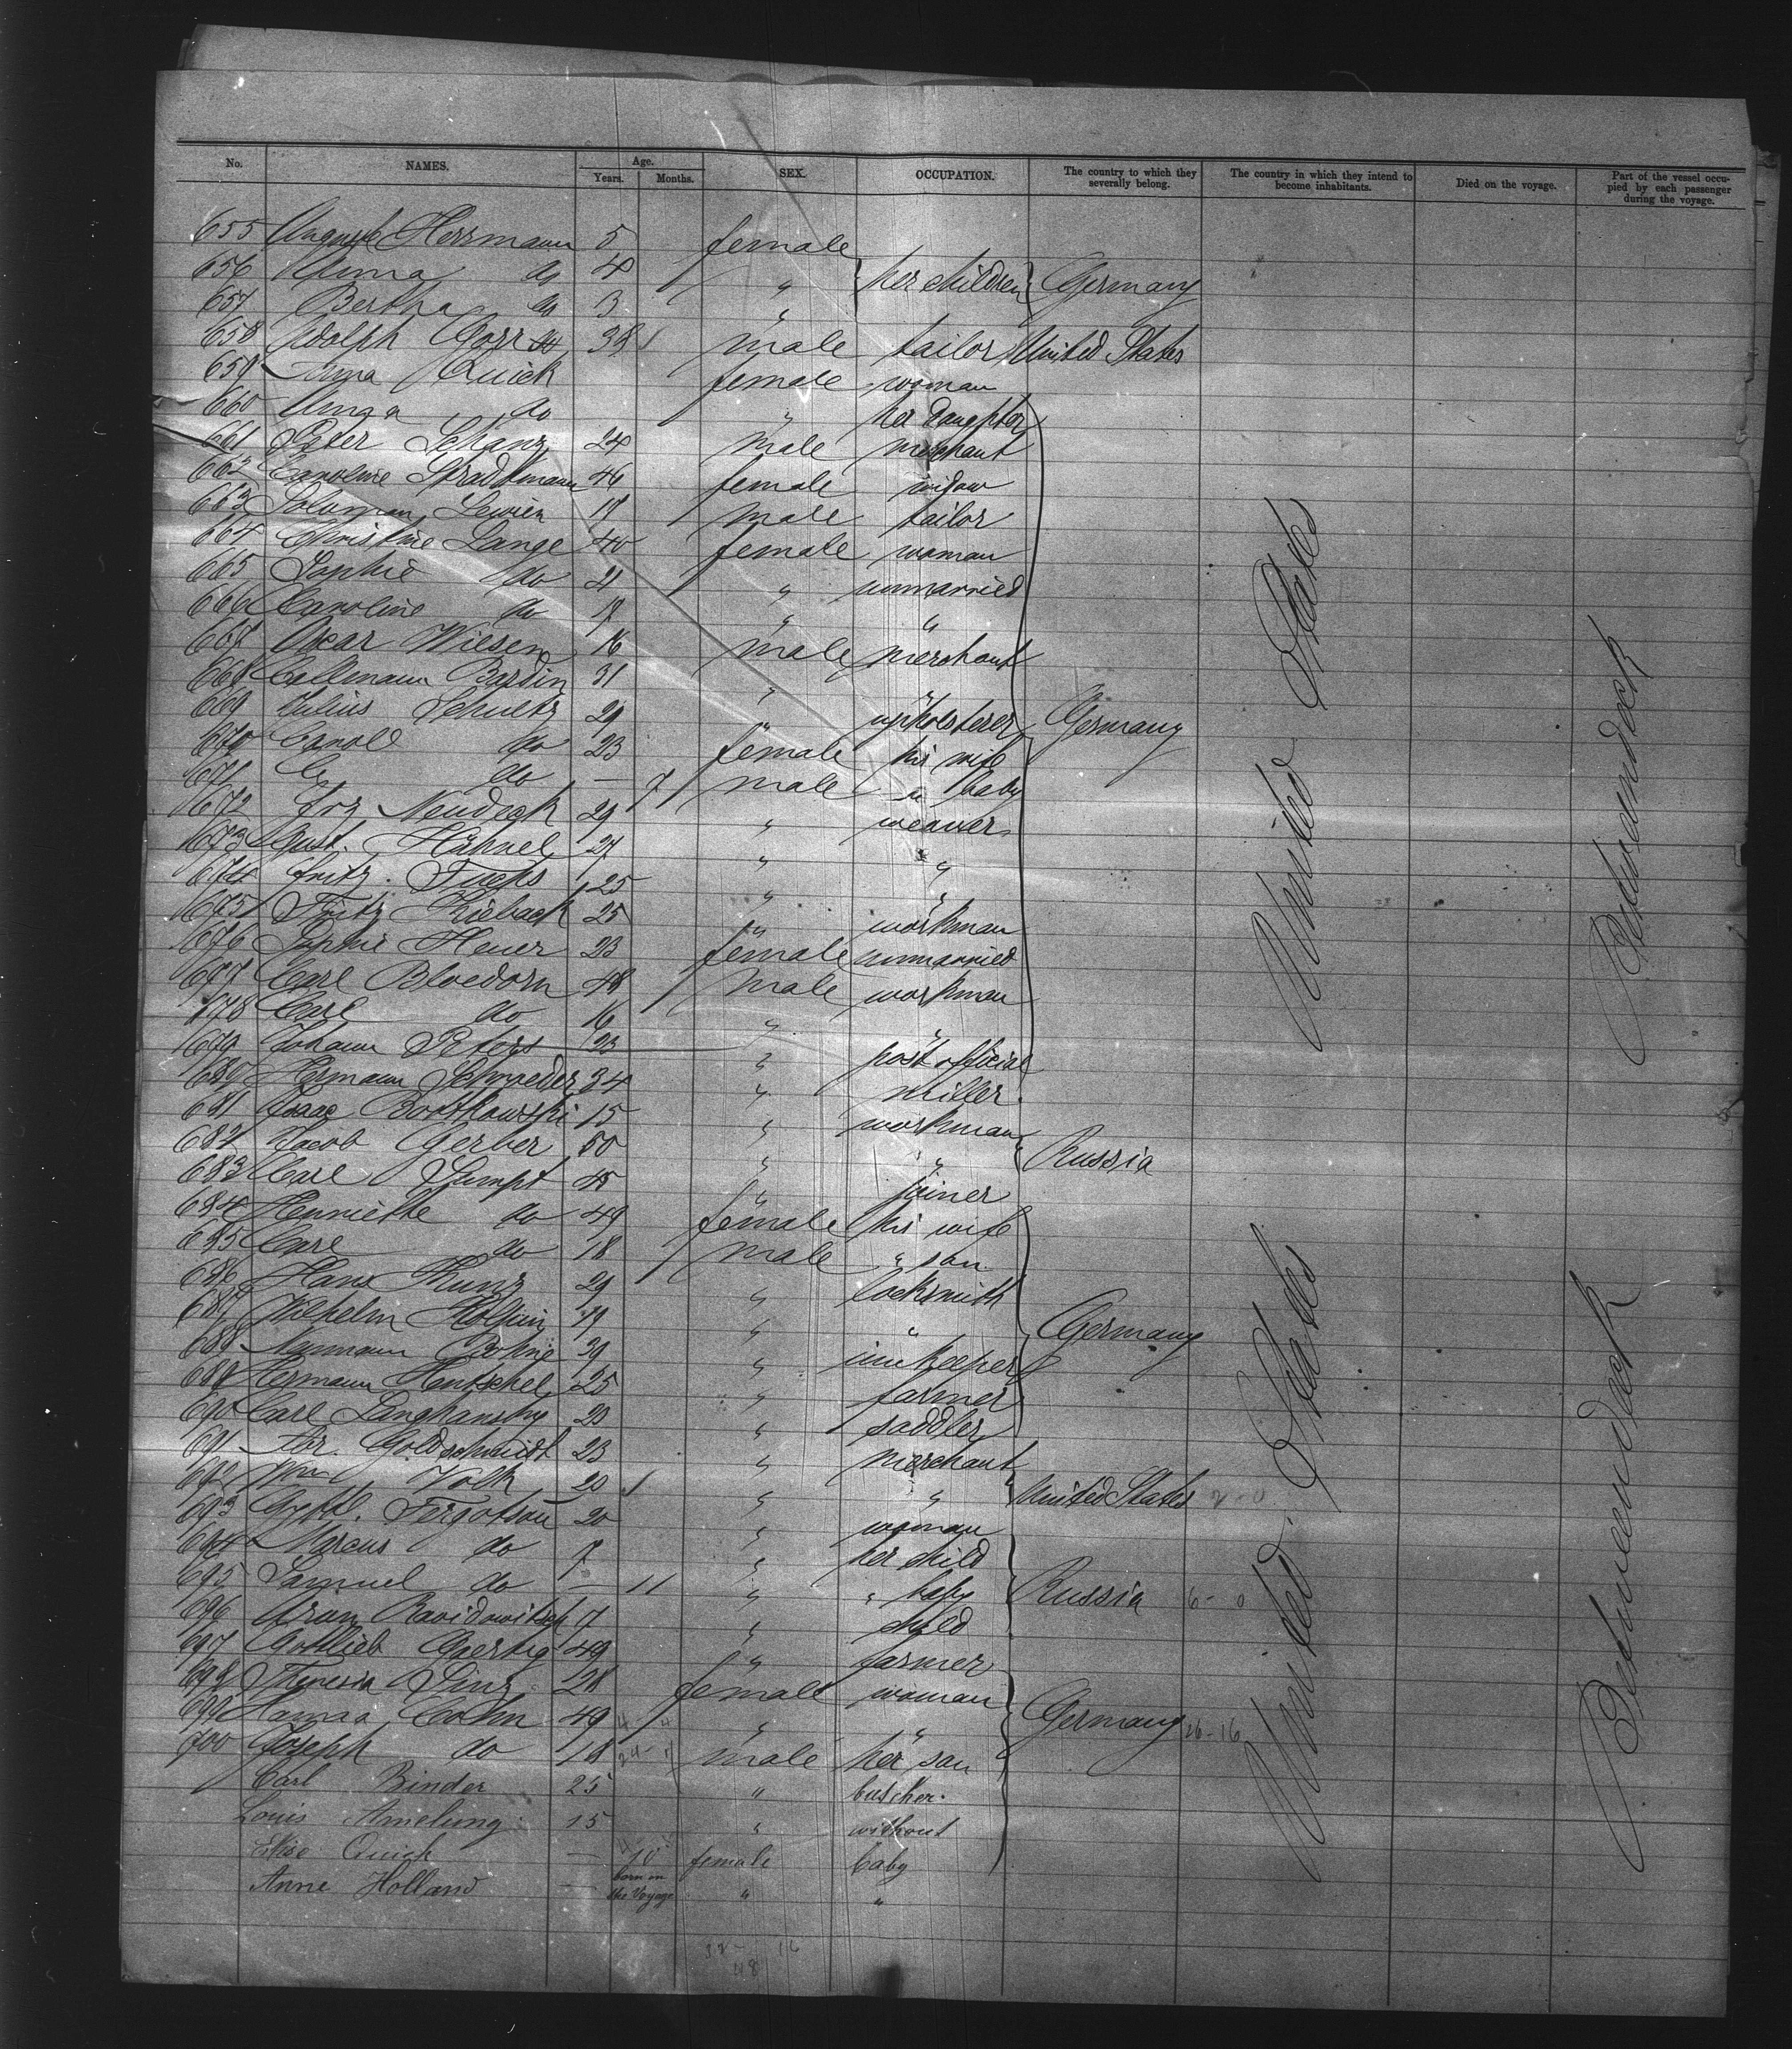 No. NAMES. Age. Years. Months. SEX. OCCUPATION. The country to which they severally belong. The country in which they intend to become inhabitants. Died on the voyage. Part of the vessel occupied by each passenger during the voyage.
655 Auguste Herrmann 5 female
656 Anna do 4 " her children Germany
657 Bertha do 3 "
658 Adolph 38 male tailor United States
659 Anna Quick female woman
660 do " her daughter
661 Peter Schanz 24 male merchant
662 Caroline Stradtmann 46 female widow
663 Soloman Lewien 17 male tailor
664 Christine Lange 40 female woman
665 Sophie do 21 " unmarried
666 Caroline do 17 " "
667 Oscar Wiesen 16 male merchant
668 Bardin 31 " "
669 Julius Schultz 29 " upholsterer Germany
670 do 23 female his wife
671 do — 7 male " baby
672 Neudegk 29 " weaver
673 Gust. Hähnel 27 " "
674 Fritz Fuchs 25 " "
675 Fritz Kieback 25 " workman
676 Sophie Heuer 23 female unmarried
677 Carl Bloedorn 48 male workman
678 Carl do 16 " "
679 Johann Peters 23 " post official
680 Hermann Schroeder 34 " miller
681 Isaac 15 " workman
682 Jacob Gerber 50 " " Russia
683 Carl 45 " joiner
684 Henriette do 49 female his wife
685 Carl do 18 male " son
686 Hans Kunz 29 " locksmith
687 Wilhelm 19 " " Germany
688 Naumann Bohne 39 " innkeeper
689 Hermann Hentschel 25 " farmer
690 Carl 23 " saddler
691 Abr. Goldschmidt 23 " merchant
692 Wm Volk 20 " " United States 2-0
693 20 " woman
694 Marcus do 7 " her child
695 Samuel do — 11 " " baby Russia 6-0
696 Aron 7 " child
697 Gottlieb 49 " farmer
698 Theresia 28 female woman
699 Cohn 49 " " Germany 26-16
700 Joseph do 18 male her son
Carl Binder 25 " butcher.
Louis Amelung 15 " without
Elise Quick — 10 female baby
Anne Holland — born on the Voyage " "
United States
United States
Betweendeck
Betweendeck
32- 16
48